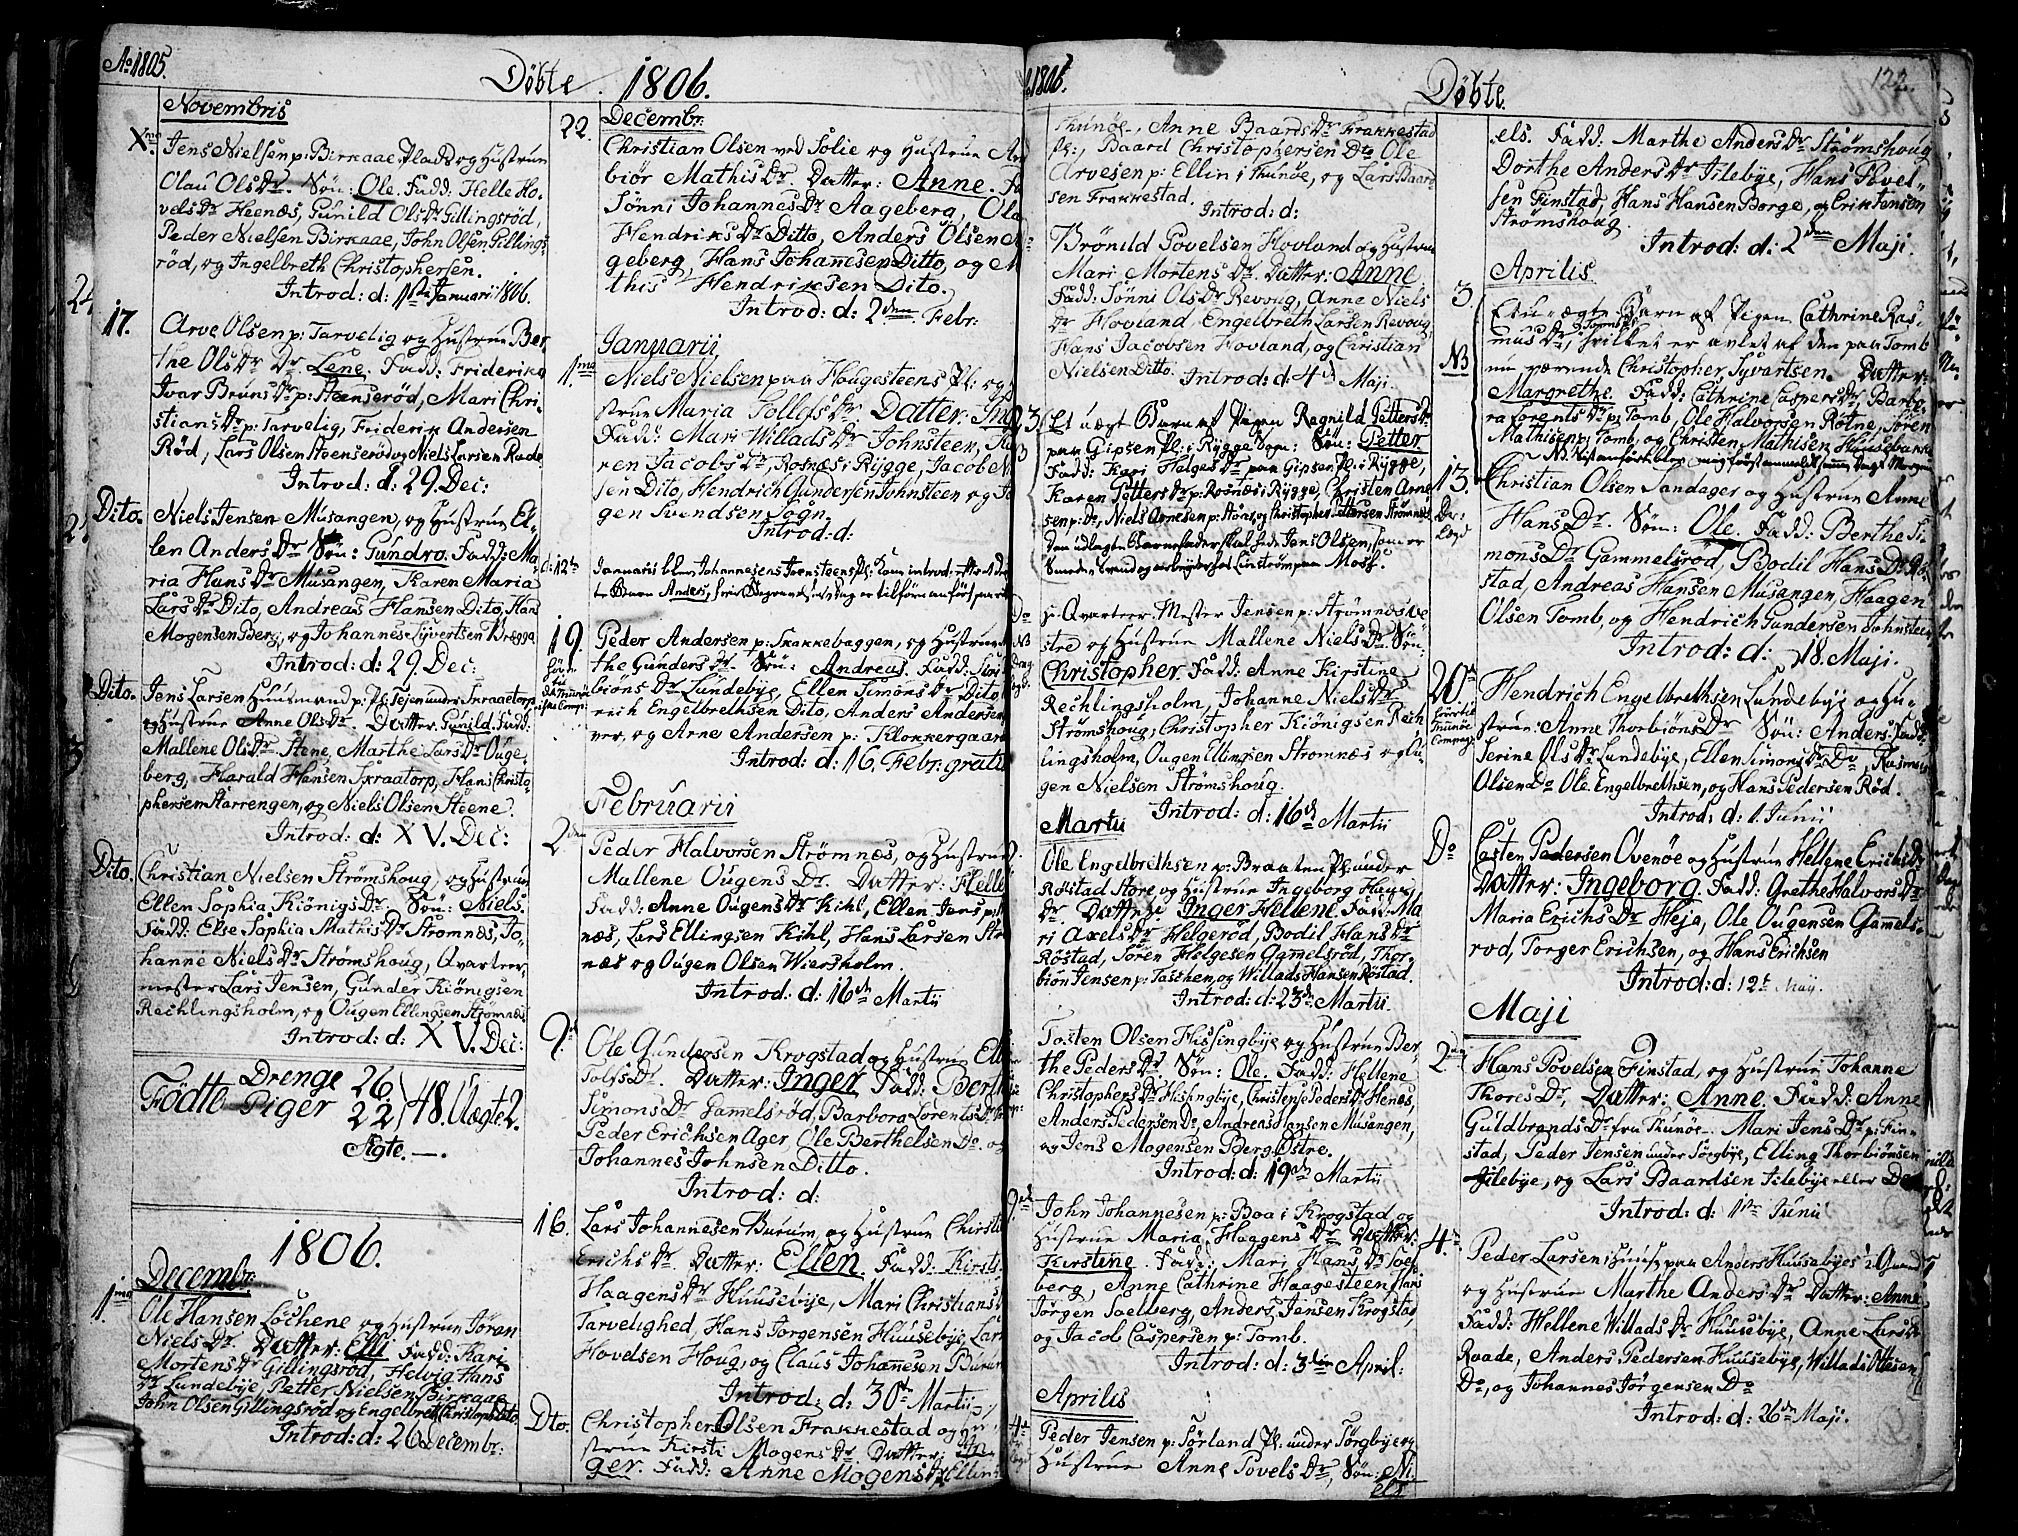 Ao 1805.
Döbte. 1806.
Novembris
Xma Jens Nielsen p: Birkaae Plads og Hustrue
Olau OlsDr. Sön: Ole. Fadd: Helle Ho-
velsDr Heenæs, Gunild OlsDr Gillingsröd,
Peder Nielsen Birkaae, John Olsen Gillings-
röd, og Ingelbreth Christophersen.
Introd: d: 1ste Januarii 1806.
17. Arve Olsen p: Tarvelig og Hustrue Ber-
the OlsDr Dr. Lene. Fadd: Friderika
Ivar BrunsDr p: Steenseröd, Mari Chri-
stiansDr p: Tarvelig, Friderik Andersen
Röd, Lars Olsen Steenseröd og Niels Larsen Rade
Introd: d: 29. Dec:
Dito. Niels Jensen Musangen, og Hustrue El-
len AndersDr Sön: Gundro. Fadd: Ma-
ria HansDr Musangen, Karen Maria
LarsDr Dito, Andreas Hansen Dito, Hans
Mogensen Berg, og Johannes Syvertsen Vragga
Introd: d: 29. Dec:
Dito. Jens Larsen Huusmand p: Pl: Tejen under Skraatorp
og Hustrue Anne OlsDr. Datter: Gunild. Fadd:
Mallene OlsDr Stene, Marthe LarsDr Ouge-
berg, Harald Hansen Skraatorp, Hans Christo-
phersen Starrengen, og Niels Olsen Steene.
Introd: d: XV. Dec:
Dito. Christian Nielsen Strömshoug, og Hustrue
Ellen Sophia KiönigsDr. Sön: Niels.
Fadd: Else Sophia MathisDr Strömnæs, Jo-
hanne NielsDr Strömshoug, Qvarteer-
mester Lars Jensen, Gunder Kiönigsen
Rechlingsholm, og Ougen Ellingsen Strömnæs
Introd: d: XV. Dec:
Födte Drenge 26
Piger 22 48. Uægte 2.
Ægte. —.
1806.
Decembr:
1ma Ole Hansen Löchene og Hustrue Jöran
NielsDr. Datter: Elli Fadd: Kari
MortensDr Gillingsröd, Helvig Hans
Dr Lundebÿe, Petter Nielsen Birkaae
John Olsen Gillingsröd og Engelbret Christophs: Dito
Introd: d: 26 Decembr:
Decembr:
22. Christian Olsen ved Solie og Hustrue
biör MathisDr Datter: Anne.
Sönni JohannesDr Aageberg, Ola
HendriksDr Ditto, Anders Olsen
geberg, Hans Johannesen Ditto, og M
this Hendriksen Dito.
Introd: d: 2den Febr:
Januarii
1ma Niels Nielsen paa Hougesteens Pl: og
strue Maria TollefsDr Datter:
Fadd: Mari WilladsDr Johnsteen,
ren JacobsDr, Rosnæs i Rÿgge, Jacob
sen Dito, Hendrich Gundersen Johnsteen og
gen Svendsen Sogn
Introd: d:
d: 12te Januarii blev Johannesens Steensteens Pl: Kone introd:
te Barn Anders, hvis Begravelsesdag er tilforn anfört
19. Peder Andersen p: Skakkebaggen, og Hustrue
the GundersDr. Sön: Andreas. Fadd:
biönsDr Lundebÿe, Ellen SimonsDr Dito
rich Engelbrethsen Dito, Anders Andersen
ver, og Arne Andersen p: Klokkergaard
Introd: d: 16. Febr: gratis
Februarii
2den Peder Halvorsen Strömnæs, og Hustrue
Mallene OugensDr. Datter: Helle
Fadd: Anne OugensDr Kihl, Ellen Jens
næs, Lars Ellingsen Kihl, Hans Larsen Ström
næs og Ougen Olsen Wiersholm.
Introd: d: 16de Martii
9de Ole Gundersen Krogstad og Hustrue
TolfsDr. Datter: Inger Fadd: Berthe
SimonsDr Gamelsröd, Barbora LorentsDr
Peder Erichsen Ager, Ole Berthelsen Do. og
Johannes Johnsen Ditto.
Introd: d:
16. Lars Johannesen Burum, og Hustrue Christi
ErichsDr. Datter: Ellen. Fadd: Kirsti
HaagensDr Huusebÿe, Mari Christians
Tarvelighed, Hans Jörgensen Huusebÿe, Lars
Hovelsen Houg, og Claus Johanesen Burum
Introd: d: 30te Martii
Dto. Christopher Olsen Frakkestad og
strue Kirsti MogensDr. Datter: In-
ger. Fadd: Anne MogensDr Ellin
1806.
Döbte.
122.
Thunöe, Anne BaardsDr Frakkestad
Pl:, Baard Christophersen Dto Ole
Arvesen p: Ellin i Thunöe, og Lars Baard-
sen Frakkestad.
Introd: d:
Brönild Povelsen Hovland og Hustrue
Mari MortensDr. Datter: Anne
Fadd: Sönni OlsDr Revoug, Anne Niels
Dr Hovland, Engelbreth Larsen Revoug,
Hans Jacobsen Hovland, og Christian
Nielsen Ditto.
Introd: d. 4de Maji
23. Et uægt Barn af Pigen Ragnild PettersDr
paa Gipsen Pl: i Rÿgge Sogn: Sön: Petter
Fadd: Kari HelgesDr paa Gipsen Pl: i Rÿgge,
Karen PettersDr p: Rosnæs i Rÿgge, Christen Arne-
sen p: Do, Niels Arnesen p: Störe, og Christopher Pettersen Strömnæs.
Den udlagte Barnefader skal hede Jens Olsen, som er
Smede-Svend og arbejder hos Lindström paa Moss.
Do NB Hr. Qvarteer-Mester Jensen p: Strömnæs Ve-
stre og Hustrue Mallene NielsDr. Sön:
Christopher. Fadd: Anne Kirstine
Rechlingsholm, Johanne NielsDr
Strömshoug, Christopher Kiönigsen Rech-
lingsholm, Ougen Ellingsen Strömnæs og Ou-
gen Nielsen Strömshoug.
Introd: d: 16de Martii
Martii
Ole Engelbrethsen p: Braaten Pl: under
Röstad Store og Hustrue Ingeborg Hans
Dr Datter: Inger Hellene Fadd: Ma-
ri AxelsDr Helgeröd, Bodil HansDr
Röstad, Sören Helgesen Gamelsröd, Thor-
biön Jensen p: Taschen, og Willads Hansen Röstad.
Introd: d: 23de Martii.
Tosten Olsen Hissingbÿe og Hustrue Ber-
the PedersDr. Sön: Ole. Fadd: Hellene
ChristophersDr Hissingbÿe, Christense PedersDr Henæs,
Anders Pedersen Do, Andreas Hansen Musangen,
og Jens Mogensen Berg Östre.
Introd: d: 19de Martii
9de John Johannesen p: Boa i Krogstad og
Hustrue Maria HaagensDr Datter:
Kirstine. Fadd: Mari HansDr Soel-
berg, Anne Cathrine Haagesteen, Hans
Jörgen Soelberg, Anders Jensen Krogstad,
og Jacob Caspersen p: Tomb.
Introd: d: 3die April:
Aprilis
4de Peder Jensen p: Sörland Pl: under Sörgbÿe og
Hustrue Anne PovelsDr, Sön: Ni-
els
els. Fadd: Marthe AndersDr Strömshoug
Dorthe AndersDr Jilebÿe, Hans Povel-
sen Finstad, Hans Hansen Borge, og Erik Jensen
Strömshoug.
Introd: d: 2den Maji.
Aprilis
3. NB Et u-ægte Barn af Pigen Cathrine Ras-
musDr, hvilket er avlet af den paa Tomb
nu værende Christopher Syvartsen. Datter:
Margrethe. Fadd: Cathrine CaspersDr, Barbo-
ra LorentsDr p: Tomb, Ole Halvorsen Rötne, Sören
Mathisen p: Tomb, og Christen Mathisen Huusebakke
13. Christian Olsen Sandager og Hustrue Anne
HansDr. Sön: Ole. Fadd: Berthe Si-
monsDr Gammelsröd, Bodil HansDr Rö-
stad, Andreas Hansen Musangen, Haagen
Olsen Tomb, og Hendrich Gundersen Johnsteen
Introd: d: 18. Maji.
20de Hendrich Engelbrethsen Lundebÿe og Hu-
strue Anne ThorbiönsDr Sön: Anders. Fadd:
Serine OlsDr Lundebÿe, Ellen SimonsDr Do, Rasmus
Olsen Do Ole Engelbrethsen, og Hans Pedersen Röd.
Introd: d: 1. Junii
Do Casten Pedersen Ovenöe og Hustrue Hellene ErichsDr
Datter: Ingeborg. Fadd: Grethe HalvorsDr
Maria ErichsDr Heja, Ole Ougensen Gamels-
rod, Torger Erichsen, og Hans Erichsen
Introd: d: 12t Maji.
Maji
2den Hans Povelsen Finstad, og Hustrue Johanne
ThoresDr, Datter: Anne. Fadd: Anne
GuldbrandsDr fra Thunöe. Mari JensDr p: Fin-
stad, Peder Jensen under Sörgbÿe, Elling Thorbiönsen
Jilebÿe, og Lars Baardsen Jilebÿe eller
Introd: d: 1ste Junii
4de Peder Larsen, Huusm: paa Anders Huusebÿes Grund
og Hustrue Marthe AndersDr Datter: Anne,
Fadd: Hellene WilladsDr Huusebÿe, Anne LarsDr
Raade, Anders Pedersen Huusebÿe, Willads Ottesen
Do, og Johannes Jörgensen Do
Introd: d: 26de Maji.